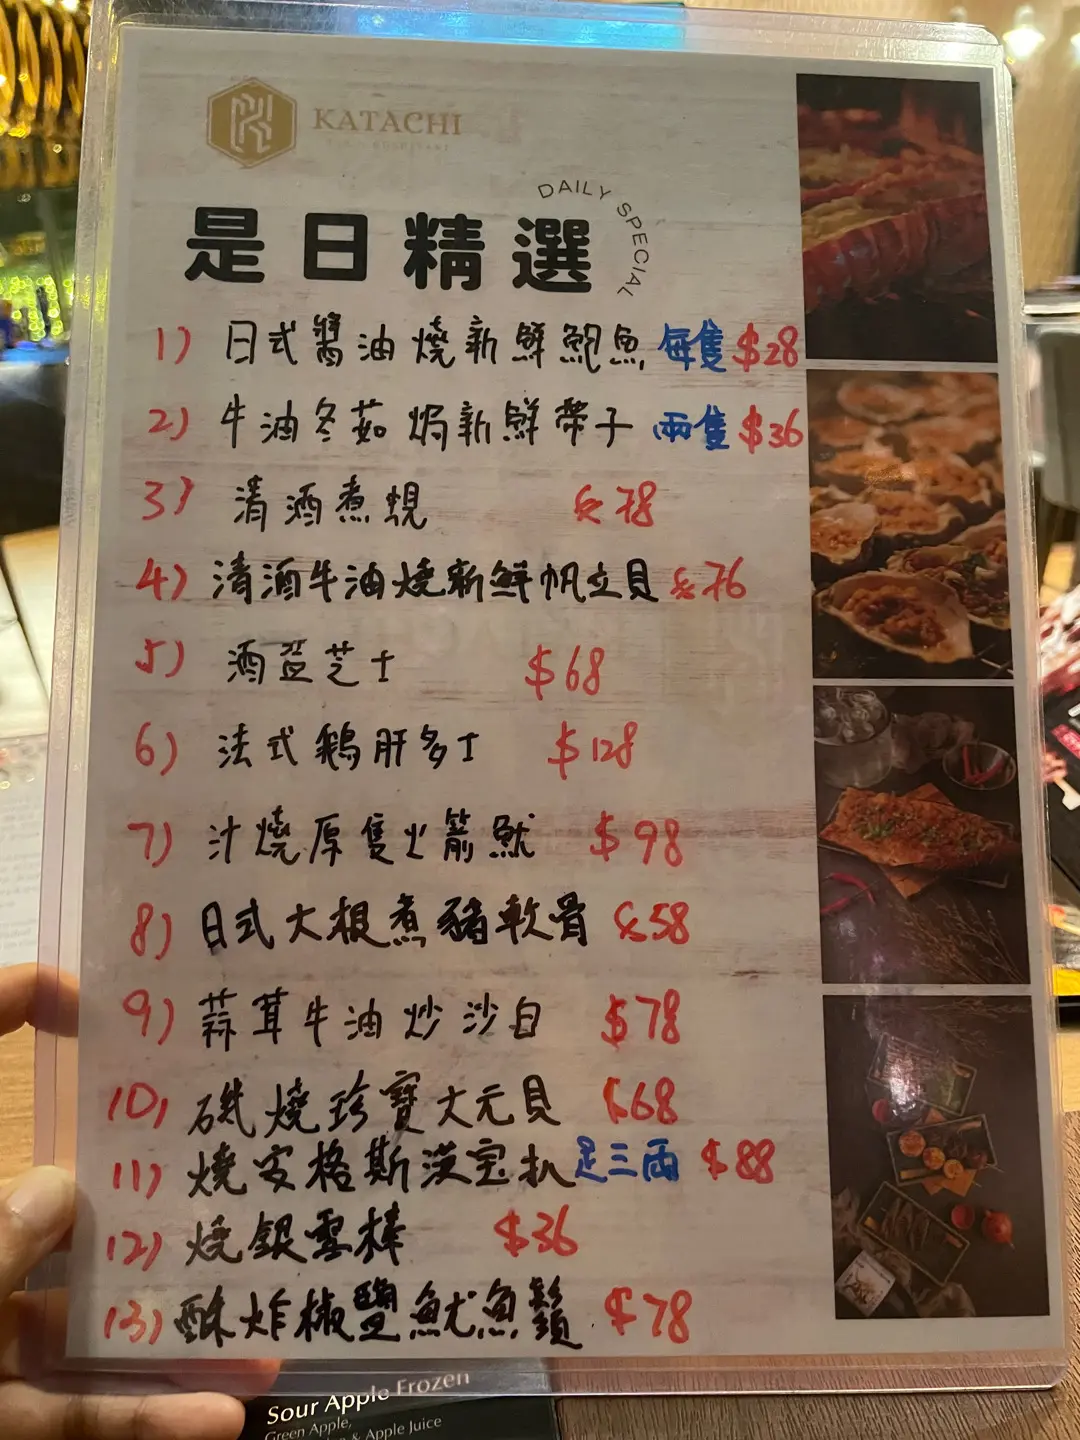 KATACHI
DAILY SPECIAL
是日精選
1) 日式醬油燒新鮮鮑魚 每隻 $28
2) 牛油冬茹焗新鮮帶子 兩隻 $36
3) 清酒煮蜆 $78
4) 清酒牛油燒新鮮帆立貝 $76
5) 酒豆芝士 $68
6) 法式鵝肝多士 $128
7) 汁燒原隻火箭魷 $98
8) 日式大根煮豬軟骨 $58
9) 蒜茸牛油炒沙白 $78
10) 磯燒珍寶大元貝 $68
11) 燒安格斯漢堡扒 足三両 $88
12) 燒銀雪棒 $36
13) 酥炸椒鹽魷魚鬚 $78
Sour Apple Frozen
Green Apple,
& Apple Juice